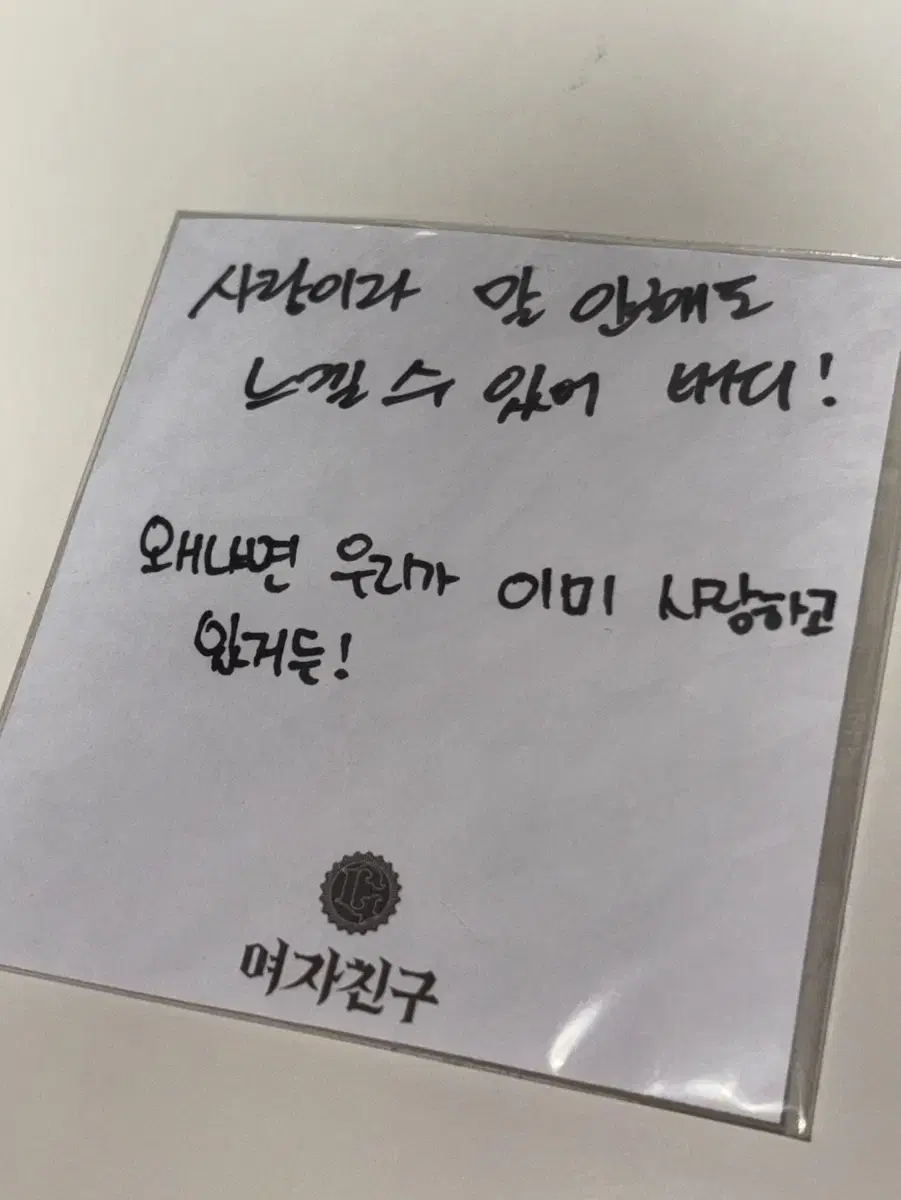 사랑이라 말 안해도
느낄 수 있어 버디!
왜냐면 우리가 이미 사랑하고
있거든!
G
여자친구